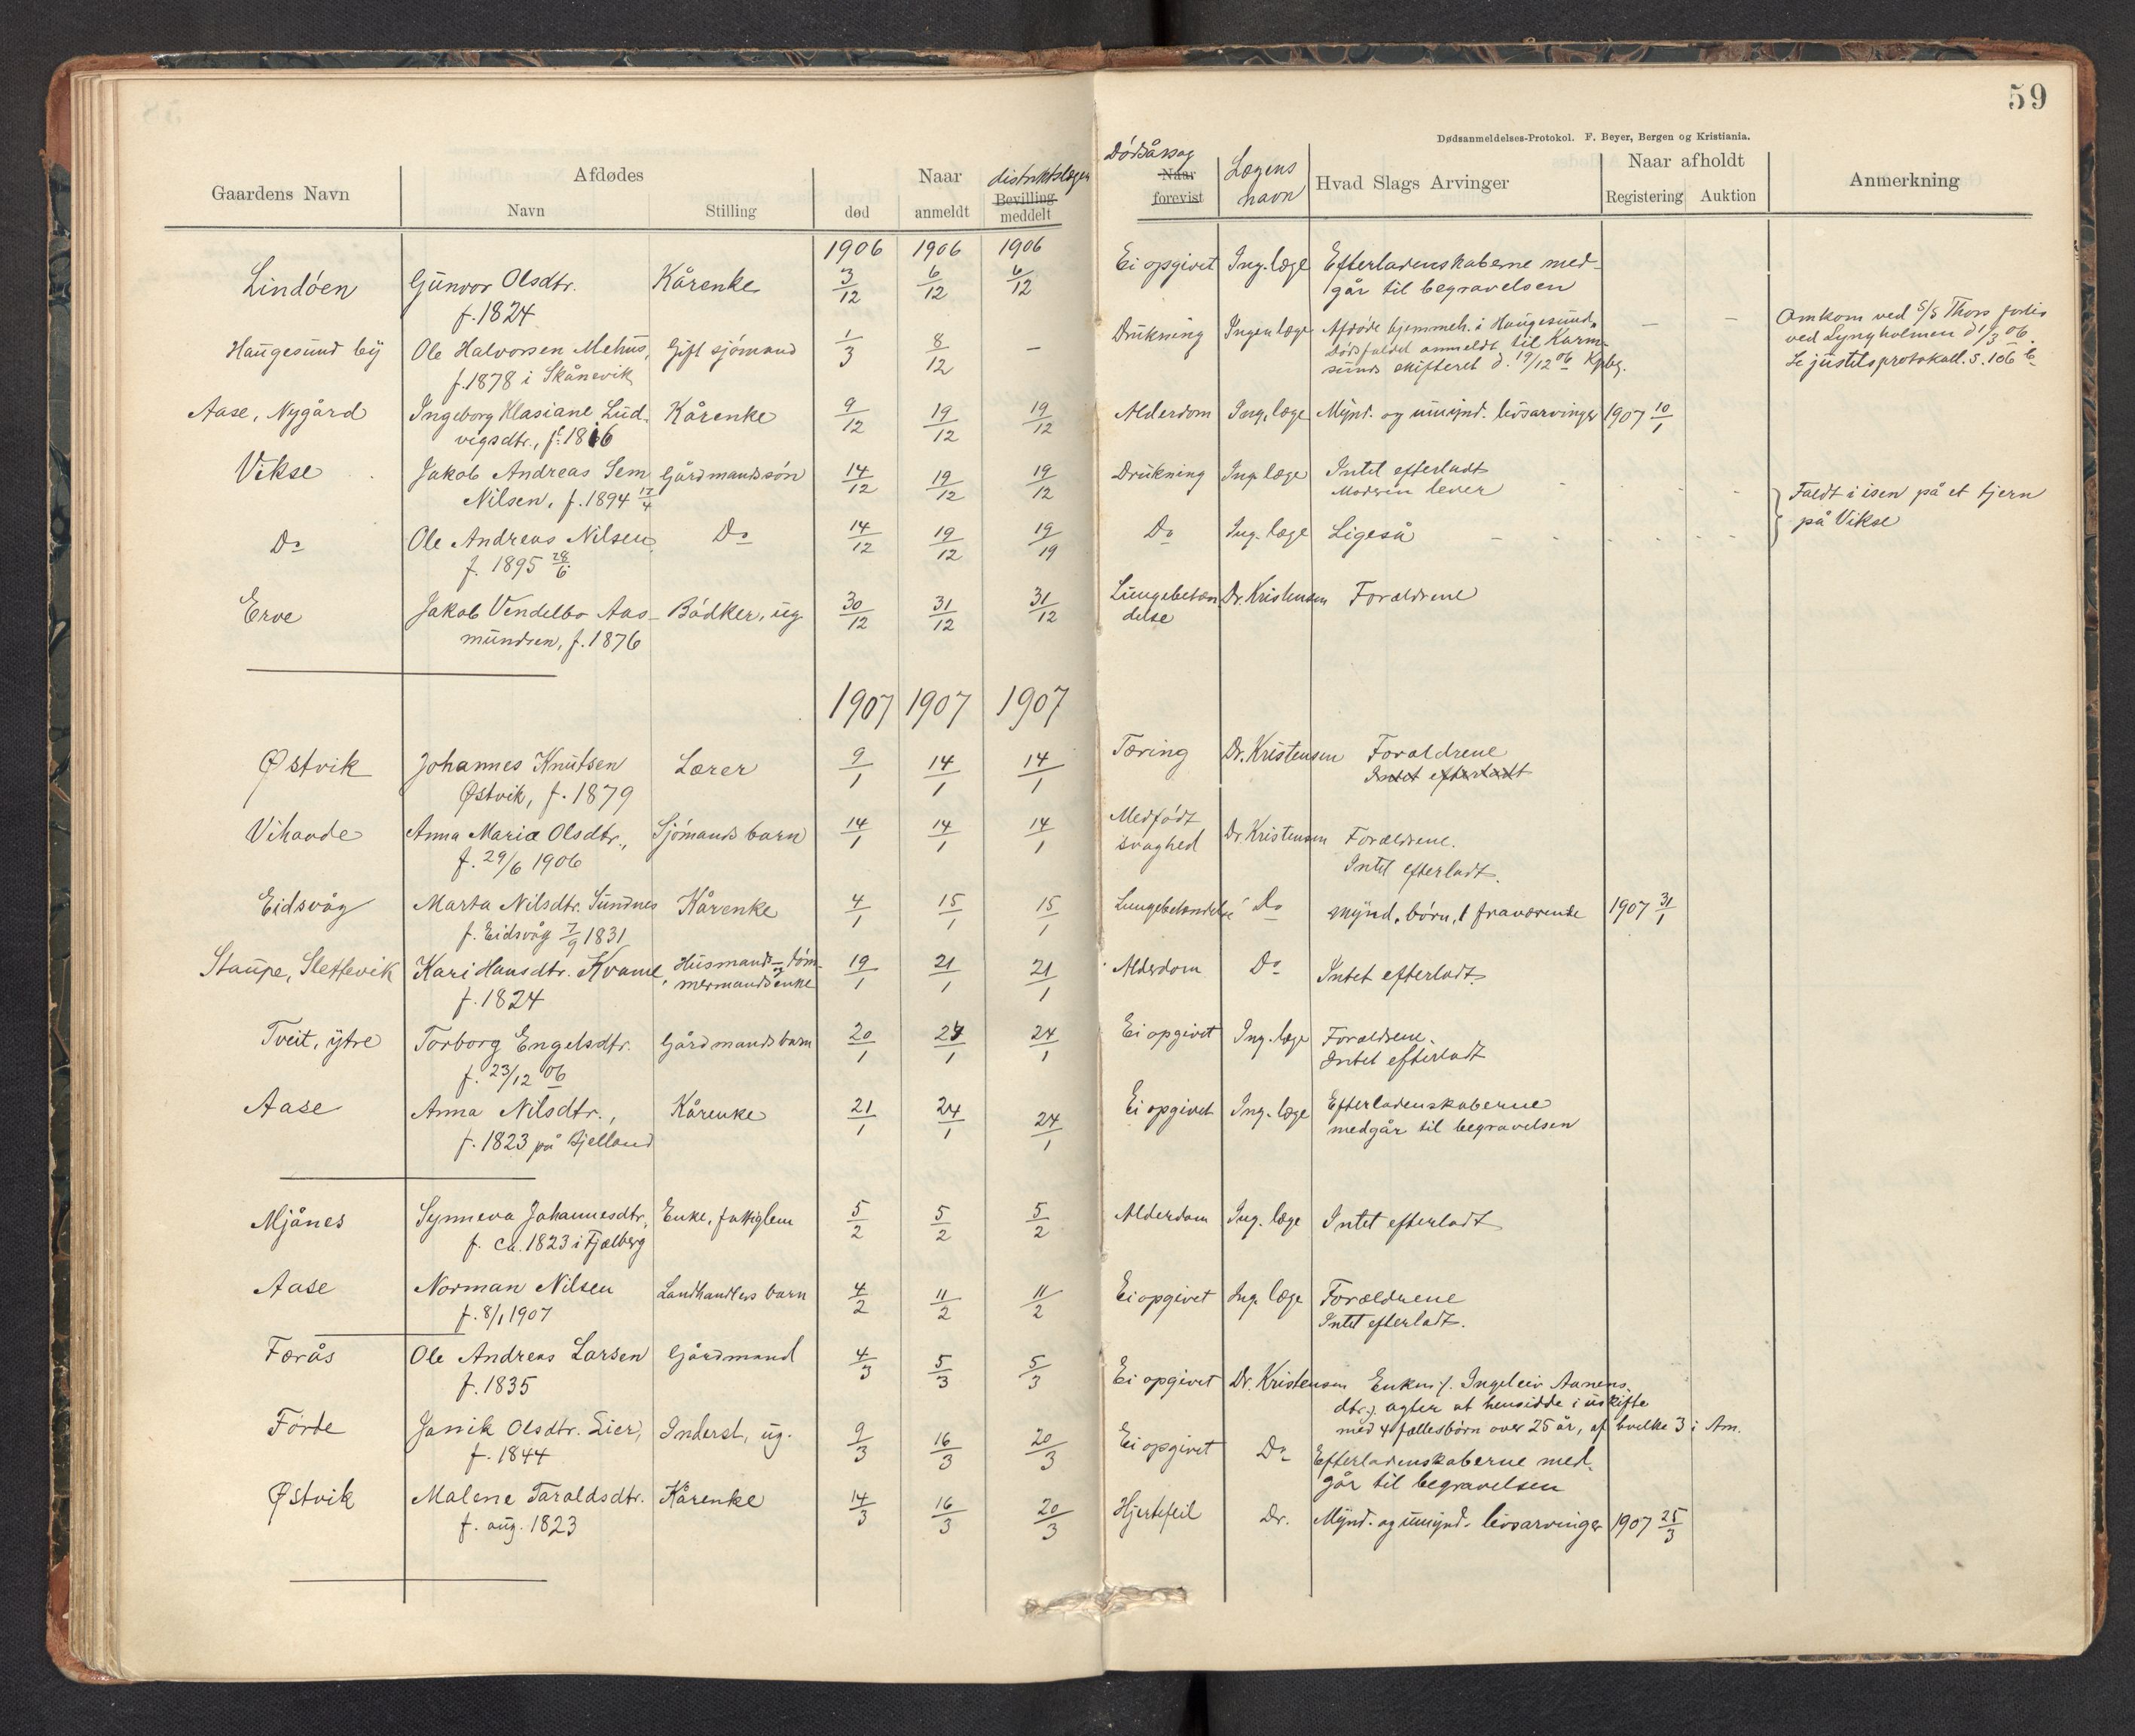 59
Dødsanmeldelses-Protokol. F. Beyer, Bergen og Kristiania.
Gaardens Navn | Afdødes Navn | Stilling | Naar død | anmeldt | distriktslægen Bevilling meddelt | Dödsårsag Naar forevist | Lægens navn | Hvad Slags Arvinger | Naar afholdt Registering | Auktion | Anmerkning
1906 | 1906 | 1906
Lindöen | Gunvor Olsdtr. | Kårenke | 3/12 | 6/12 | 6/12 | Ei opgivet | Ing. læge | Efterladenskaberne med-
f. 1824 | går til begravelsen
Haugesund by | Ole Halvorsen Mehus, | Gift sjömand | 1/3 | 8/12 | — | Drukning | Ingen læge | Afdöde hjemmeh. i Haugesund. | — | — | Omkom ved S/S Thors forlis
f. 1878 i Skånevik | Dödsfaldet anmeldt til Karm- | ved Lyngholmen d 1/3 06.
sunds skifteret d. 19/12 06 Kpbg. | Se justitsprotokall. S. 106 b
Aase, Nygård | Ingeborg Klasiane Lud- | Kårenke | 9/12 | 19/12 | 19/12 | Alderdom | Ing. læge | Mynd. og umynd. livsarvinger | 1907 10/1
vigsdtr., f. 1816
Vikse | Jakob Andreas Sem | Gårdmandssön | 14/12 | 19/12 | 19/12 | Drukning | Ing. læge | Intet efterladt
Nilsen, f. 1894 17/4 | Moderen lever | Faldt i isen på et tjern
Do | Ole Andreas Nilsen | Do | 14/12 | 19/12 | 19/19 | Do | Ing. læge | Ligeså | på Vikse
f. 1895 28/6
Erve | Jakob Vendelbo Aas- | Bödker, ug. | 30/12 | 31/12 | 31/12 | Lungebetæn- | Dr. Kristensen | Forældrene
mundsen, f. 1876 | delse
1907 | 1907 | 1907
Østvik | Johannes Knutsen | Lærer | 9/1 | 14/1 | 14/1 | Tæring | Dr. Kristensen | Forældrene
Østvik, f. 1879 | Intet efterladt
Vihavde | Anna Maria Olsdtr., | Sjömands barn | 14/1 | 14/1 | 14/1 | Medfödt | Dr. Kristensen | Forældrene.
f. 29/6 1906 | svaghed | Intet efterladt.
Eidsvåg | Marta Nilsdtr. Sundnes | Kårenke | 4/1 | 15/1 | 15/1 | Lungebetændelse | Do | Mynd. börn, 1 fraværende | 1907 31/1
f. Eidsvåg 7/9 1831
Staupe, Slettevik | Kari Hansdtr. Kvame, | Husmands- og töm- | 19/1 | 21/1 | 21/1 | Alderdom | Do | Intet efterladt.
f. 1824 | mermandsenke
Tveit, ytre | Torborg Engelsdtr. | Gårdmands barn | 20/1 | 24/1 | 24/1 | Ei opgivet | Ing. læge | Forældrene.
f. 23/12 06 | Intet efterladt
Aase | Anna Nilsdtr., | Kårenke | 21/1 | 24/1 | 24/1 | Ei opgivet | Ing. læge | Efterladenskaberne
f. 1823 på Bjelland | medgår til begravelsen
Mjånes | Synneva Johannesdtr, | Enke, fattiglem | 5/2 | 5/2 | 5/2 | Alderdom | Ing. læge | Intet efterladt
f. ca. 1823 i Fjælberg
Aase | Norman Nilsen | Landhandlers barn | 4/2 | 11/2 | 11/2 | Ei opgivet | Ing. læge | Forældrene
f. 8/1 1907 | Intet efterladt.
Færås | Ole Andreas Larsen | Gårdmand | 4/3 | 5/3 | 5/3 | Ei opgivet | Dr. Kristensen | Enken /. Ingeleiv Aanens-
f. 1835 | dtr./. agter at hensidde i uskifte
med 4 fællesbörn over 25 år, af hvilke 3 i Am.
Förde | Janik Olsdtr. Lier, | Inderst, ug. | 9/3 | 16/3 | 20/3 | Ei opgivet | Do | Efterladenskaberne med-
f. 1844 | går til begravelsen
Østvik | Malene Taraldsdtr. | Kårenke | 14/3 | 16/3 | 20/3 | Hjertefeil | Do. | Mynd. og umynd. livsarvinger | 1907 25/3
f. aug. 1823